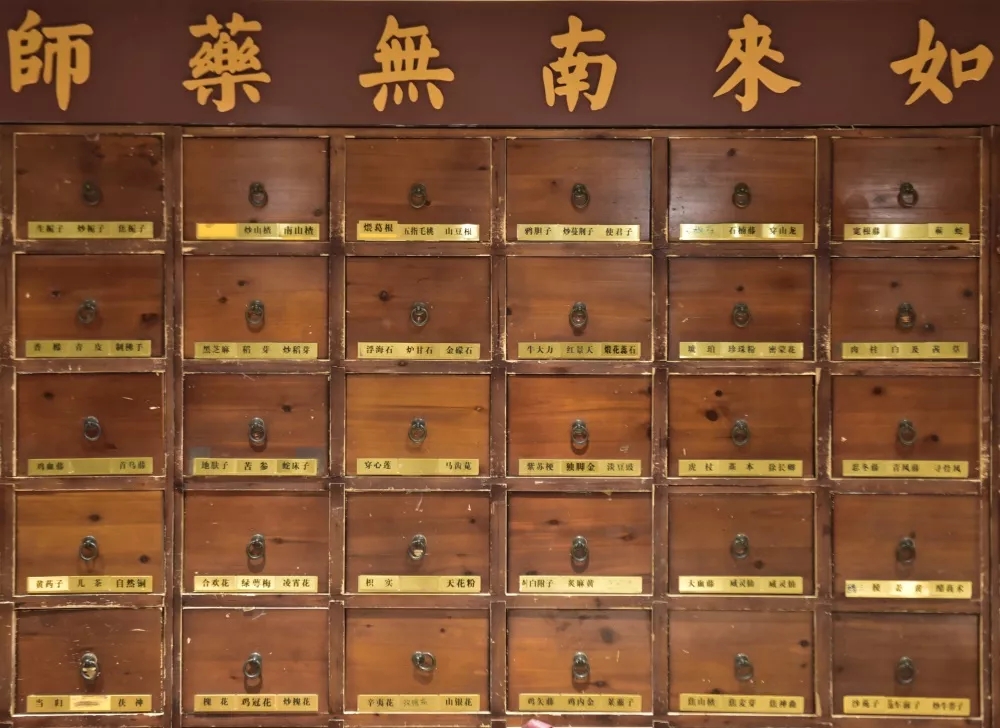 師藥無南來如
生栀子 炒栀子 焦栀子
炒山楂 南山楂
煨葛根 五指毛桃 山豆根
鸦胆子 炒蔓荆子 使君子
石楠藤 穿山龙
宽根藤 蕲蛇
香橼 青皮 制佛手
黑芝麻 稻芽 炒稻芽
浮海石 炉甘石 金礞石
牛大力 红景天 煅花蕊石
琥珀 珍珠粉 密蒙花
肉桂 白及 茜草
鸡血藤 首乌藤
地肤子 苦参 蛇床子
穿心莲 马齿苋
紫苏梗 独脚金 淡豆豉
虎杖 藁本 徐长卿
忍冬藤 青风藤 寻骨风
黄药子 儿茶 自然铜
合欢花 绿萼梅 凌霄花
枳实 天花粉
制白附子 炙麻黄
大血藤 威灵仙 威灵仙
三棱 姜黄 醋莪术
当归 茯神
槐花 鸡冠花 炒槐花
辛夷花 玫瑰花 山银花
鸡矢藤 鸡内金 莱菔子
焦山楂 焦麦芽 焦神曲
沙苑子 炒牛蒡子